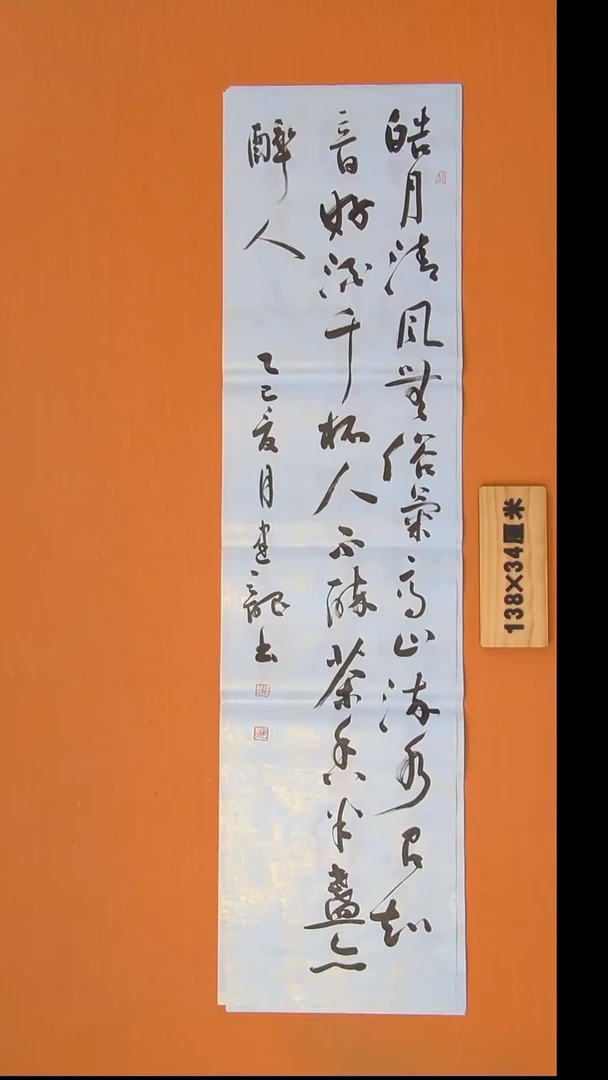 皓月清風無俗氣高山流水有知
音好酒千杯人不醉茶香半盞亦
醉人
乙巳夏月建龍书
138×34厘米